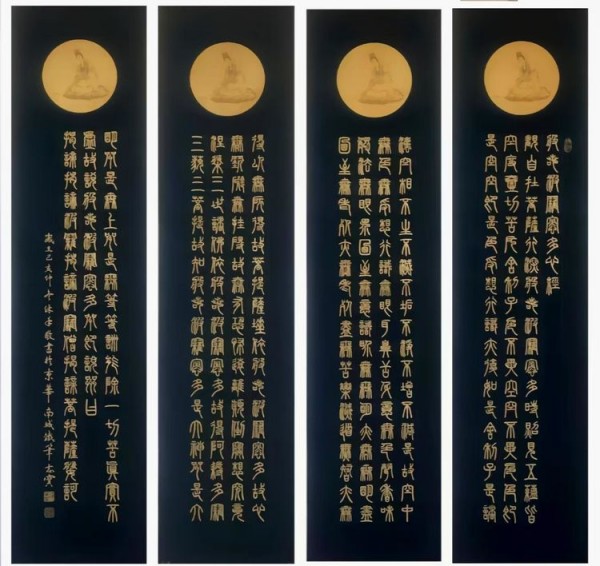 般若波羅密多心經
觀自在菩薩行深般若波羅密多時照見五蘊皆
空度一切苦厄舍利子色不異空空不異色色即
是空空即是色受想行識亦復如是舍利子是諸
法空相不生不滅不垢不淨不增不減是故空中
無色無受想行識無眼耳鼻舌身意無色聲香味
觸法無眼界乃至無意識界無無明亦無無明盡
乃至無老死亦無老死盡無苦集滅道無智亦無
得以無所得故菩提薩埵依般若波羅密多故心
無罣礙無罣礙故無有恐怖遠離顛倒夢想究竟
涅槃三世諸佛依般若波羅密多故得阿耨多羅
三藐三菩提故知般若波羅密多是大神咒是大
明咒是無上咒是無等等咒能除一切苦真實不
虛故說般若波羅密多咒即說咒曰
揭諦揭諦波羅揭諦波羅僧揭諦菩提薩婆訶
亥仲冬沐手敬書於京華南城鐵筆